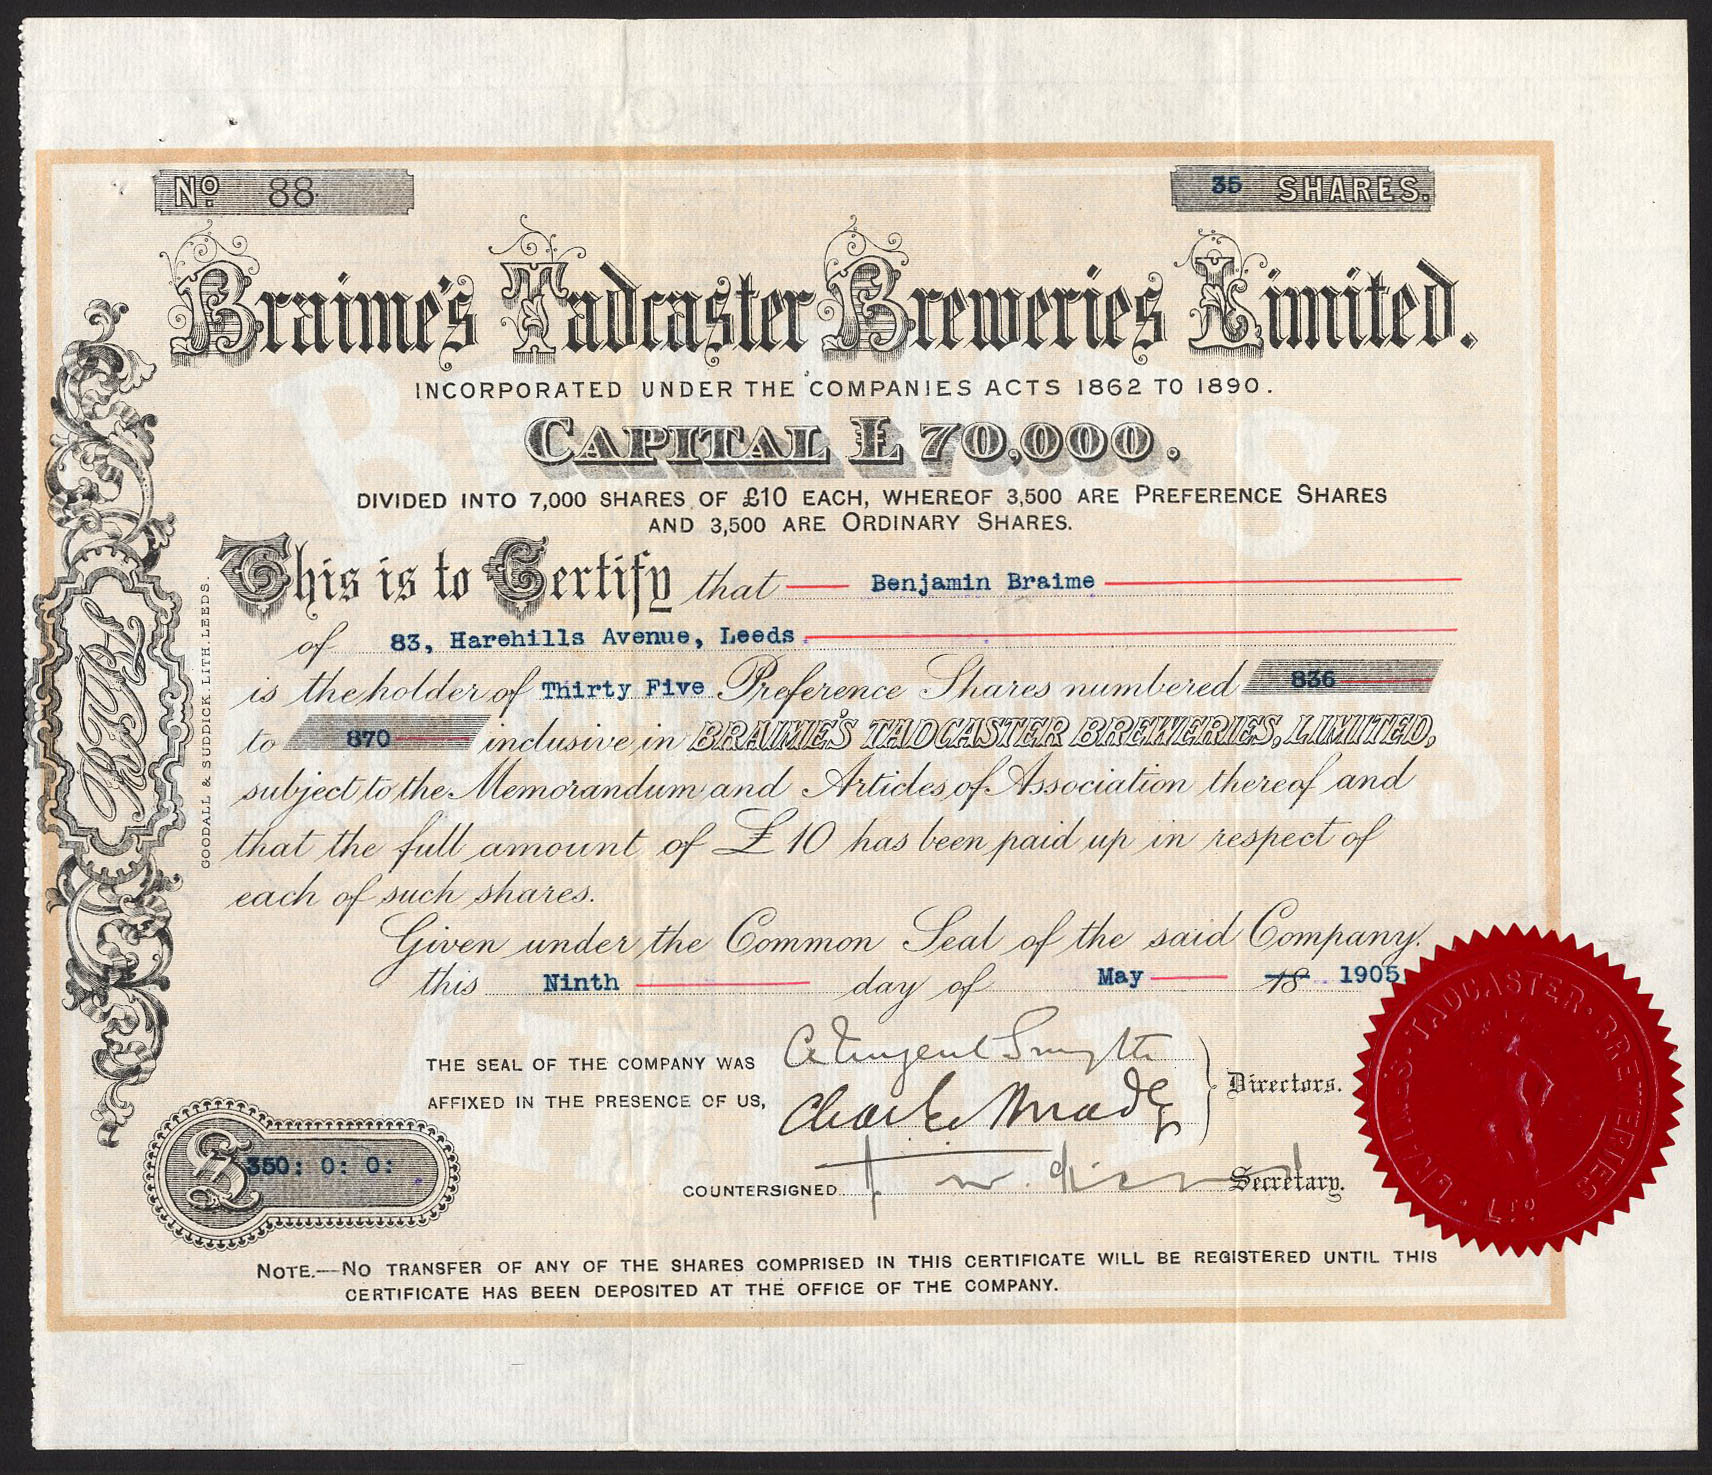 No. 88
35 SHARES.
Braime's Tadcaster Breweries Limited.
INCORPORATED UNDER THE COMPANIES ACTS 1862 TO 1890.
CAPITAL £70,000.
DIVIDED INTO 7,000 SHARES OF £10 EACH, WHEREOF 3,500 ARE PREFERENCE SHARES
AND 3,500 ARE ORDINARY SHARES.
This is to Certify that Benjamin Braime
of 83, Harehills Avenue, Leeds.
is the holder of Thirty Five Preference Shares numbered 836
to 870 inclusive in BRAIME'S TADCASTER BREWERIES, LIMITED,
subject to the Memorandum and Articles of Association thereof and
that the full amount of £10 has been paid up in respect of
each of such shares.
Given under the Common Seal of the said Company.
this Ninth day of May 18 1905
THE SEAL OF THE COMPANY WAS
AFFIXED IN THE PRESENCE OF US,
Directors.
£ 350: 0: 0:
COUNTERSIGNED Secretary.
NOTE.—NO TRANSFER OF ANY OF THE SHARES COMPRISED IN THIS CERTIFICATE WILL BE REGISTERED UNTIL THIS
CERTIFICATE HAS BEEN DEPOSITED AT THE OFFICE OF THE COMPANY.
GOODALL & SUDDICK, LITH. LEEDS.
BRAIME'S · TADCASTER · BREWERIES · LTD